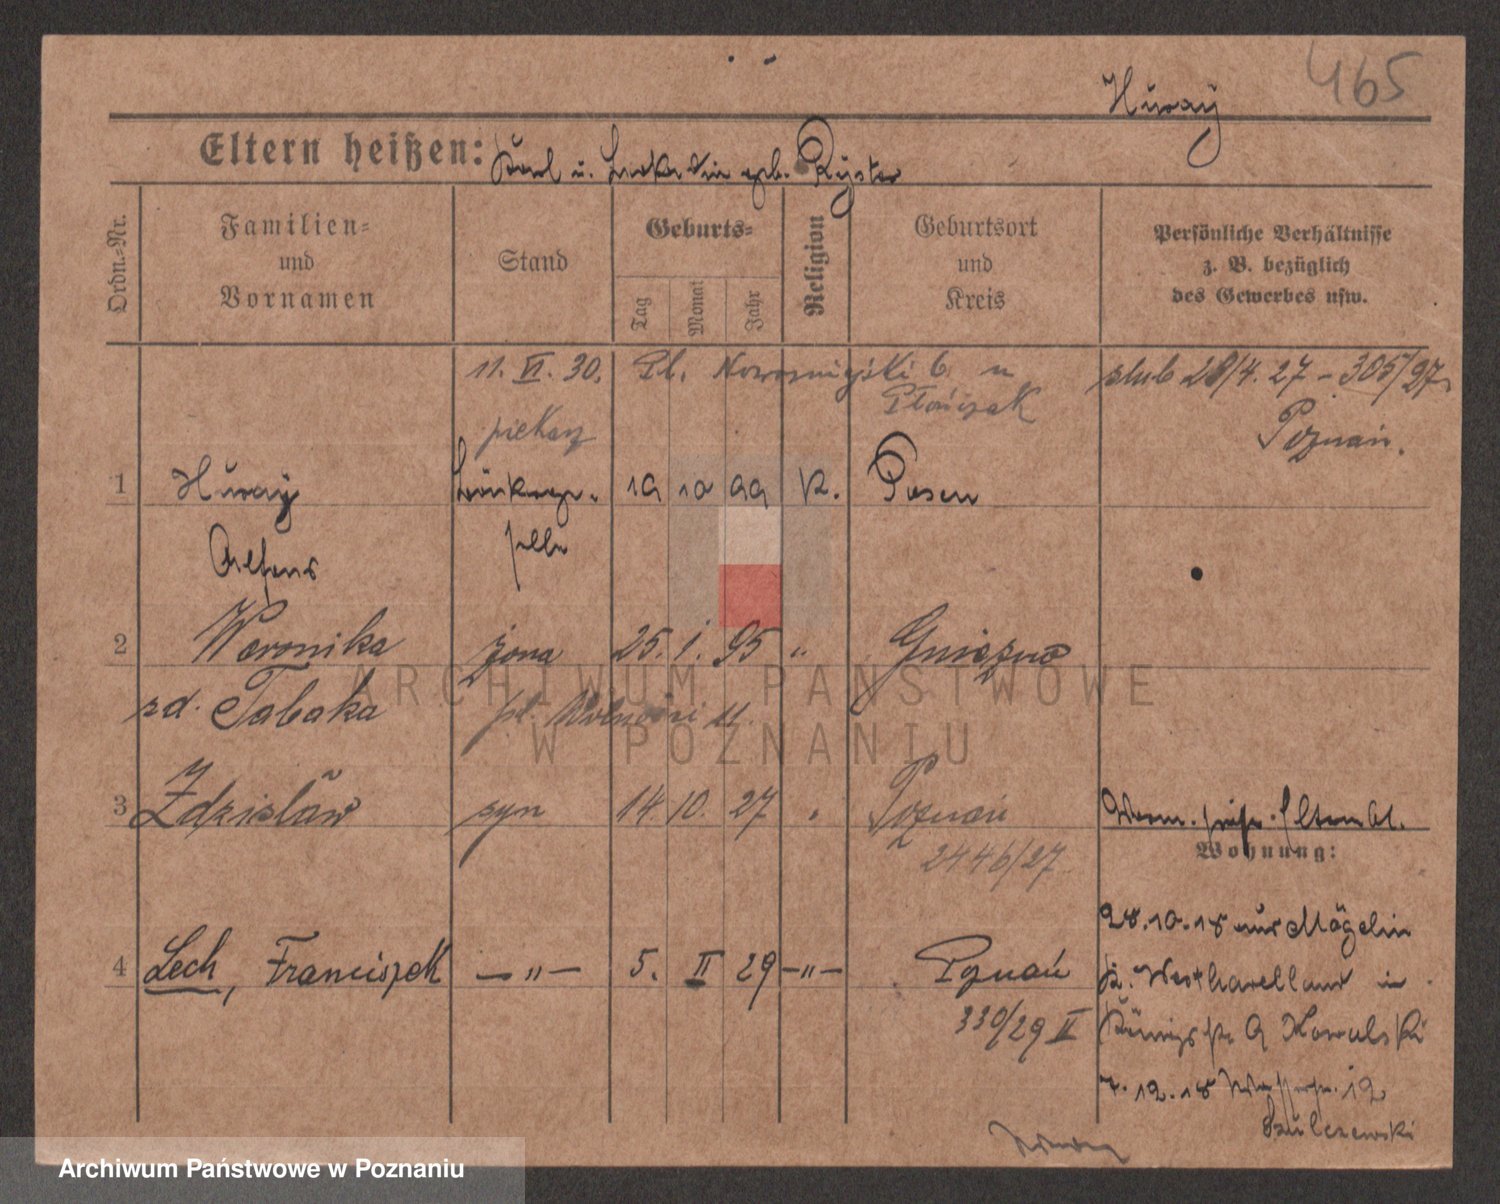 465
Huray
Eltern heißen: Karl u. geb. Ryster
Ordn.=Nr.
Familien=
und
Vornamen
Stand
Geburts=
Tag
Monat
Jahr
Religion
Geburtsort
und
Kreis
Persönliche Verhältnisse
z. B. bezüglich
des Gewerbes usw.
11. VI. 30. Pl. Nowomiejski 6 u ślub 28/4. 27 - 305/27
piekarz Poznań.
1 Huray 19 10 99 K. Posen
Alfons
2 Weronika żona 25. 1. 95 " Gniezno
zd. Tabaka pl. Wolności 11.
3 Zdzisław syn 14. 10. 27 " Poznań
2446/27
Wohnung:
28.10.18 aus Mögelin
4 Lech, Franciszek —"— 5. II 29 —"— Poznań K. Westhavelland in
330/29 II 9 Kowalski
7.12.18 12
Szulczewski
ARCHIWUM PAŃSTWOWE
W POZNANIU
Archiwum Państwowe w Poznaniu